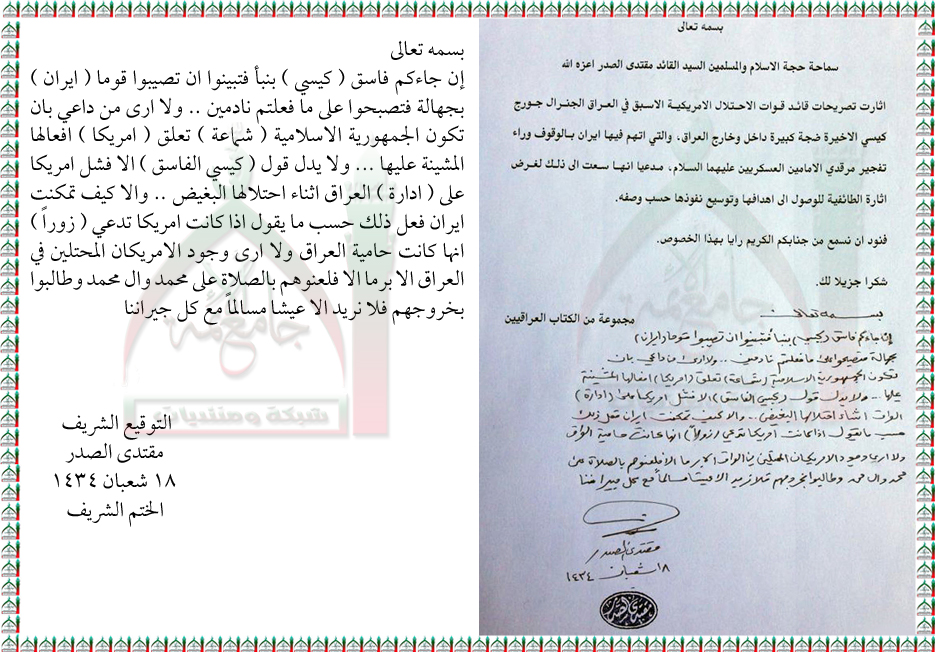 بسمه تعالى
إن جاءكم فاسق ( كيسي ) بنبأ فتبينوا ان تصيبوا قوما ( ايران )
بجهالة فتصبحوا على ما فعلتم نادمين .. ولا ارى من داعي بان
تكون الجمهورية الاسلامية ( شماعة ) تعلق ( امريكا ) افعالها
المشينة عليها ... ولا يدل قول ( كيسي الفاسق ) الا فشل امريكا
على ( ادارة ) العراق اثناء احتلالها البغيض .. والا كيف تمكنت
ايران فعل ذلك حسب ما يقول اذا كانت امريكا تدعي ( زوراً )
انها كانت حامية العراق ولا ارى وجود الامريكان المحتلين في
العراق الا برما الا فلعنوهم بالصلاة على محمد وال محمد وطالبوا
بخروجهم فلا نريد الا عيشا مسالماً مع كل جيراننا
التوقيع الشريف
مقتدى الصدر
١٨ شعبان ١٤٣٤
الختم الشريف
جامع الأئمة
شبكة ومنتديات
بسمه تعالى
سماحة حجة الاسلام والمسلمين السيد القائد مقتدى الصدر اعزه الله
اثارت تصريحات قائد قوات الاحتلال الامريكية الاسبق في العراق الجنرال جورج
كيسي الاخيرة ضجة كبيرة داخل وخارج العراق، والتي اتهم فيها ايران بالوقوف وراء
تفجير مرقدي الامامين العسكريين عليهما السلام، مدعيا انها سعت الى ذلك لغرض
اثارة الطائفية للوصول الى اهدافها وتوسيع نفوذها حسب وصفه.
فنود ان نسمع من جنابكم الكريم رايا بهذا الخصوص.
شكرا جزيلا لك.
مجموعة من الكتاب العراقيين
بسمه تعالى
إن جاءكم فاسق (كيسي) بنبأ فتبينوا ان تصيبوا قوما (ايران)
بجهالة فتصبحوا على ما فعلتم نادمين .. ولا ارى من داعي بان
تكون الجمهورية الاسلامية (شماعة) تعلق (امريكا) افعالها المشينة
عليها ... ولا يدل قول (كيسي الفاسق) الا فشل امريكا على (ادارة)
العراق اثناء احتلالها البغيض .. والا كيف تمكنت ايران فعل ذلك
حسب ما يقول اذا كانت امريكا تدعي (زوراً) انها كانت حامية العراق
ولا ارى وجود الامريكان المحتلين في العراق الا برما الا فلعنوهم بالصلاة على
محمد وال محمد وطالبوا بخروجهم فلا نريد الا عيشا مسالماً مع كل جيراننا
مقتدى الصدر
١٨ شعبان ١٤٣٤
مقتدى الصدر